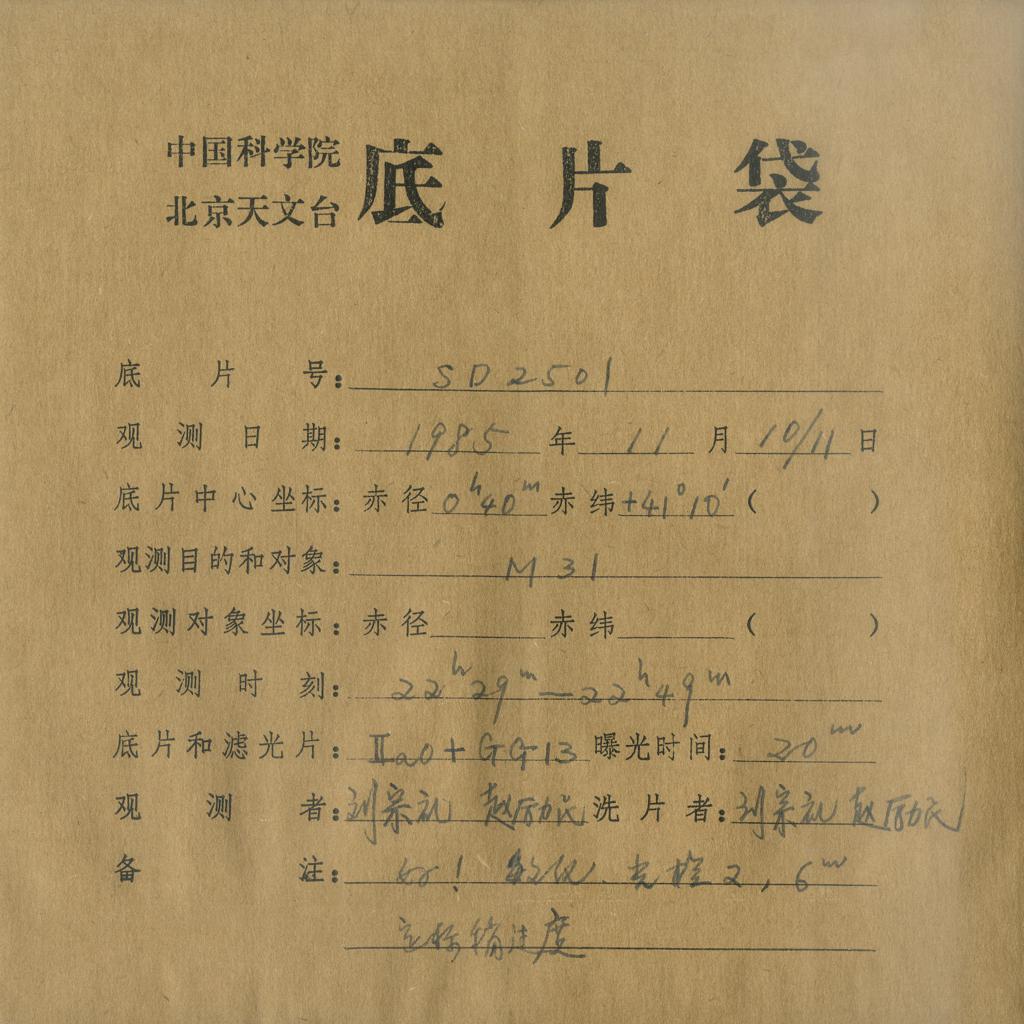 中国科学院
北京天文台 底片袋
底片号：SD2501
观测日期：1985年11月10/11日
底片中心坐标：赤径0ʰ40ᵐ赤纬+41°10′（ ）
观测目的和对象：M31
观测对象坐标：赤径 赤纬 （ ）
观测时刻：22ʰ29ᵐ—22ʰ49ᵐ
底片和滤光片：ⅡaO+GG13 曝光时间：20ᵐ
观测者：刘宗礼 赵励民 洗片者：刘宗礼 赵励民
备注：好！ 敏化. 光楔2，6ᵐ
定标 度